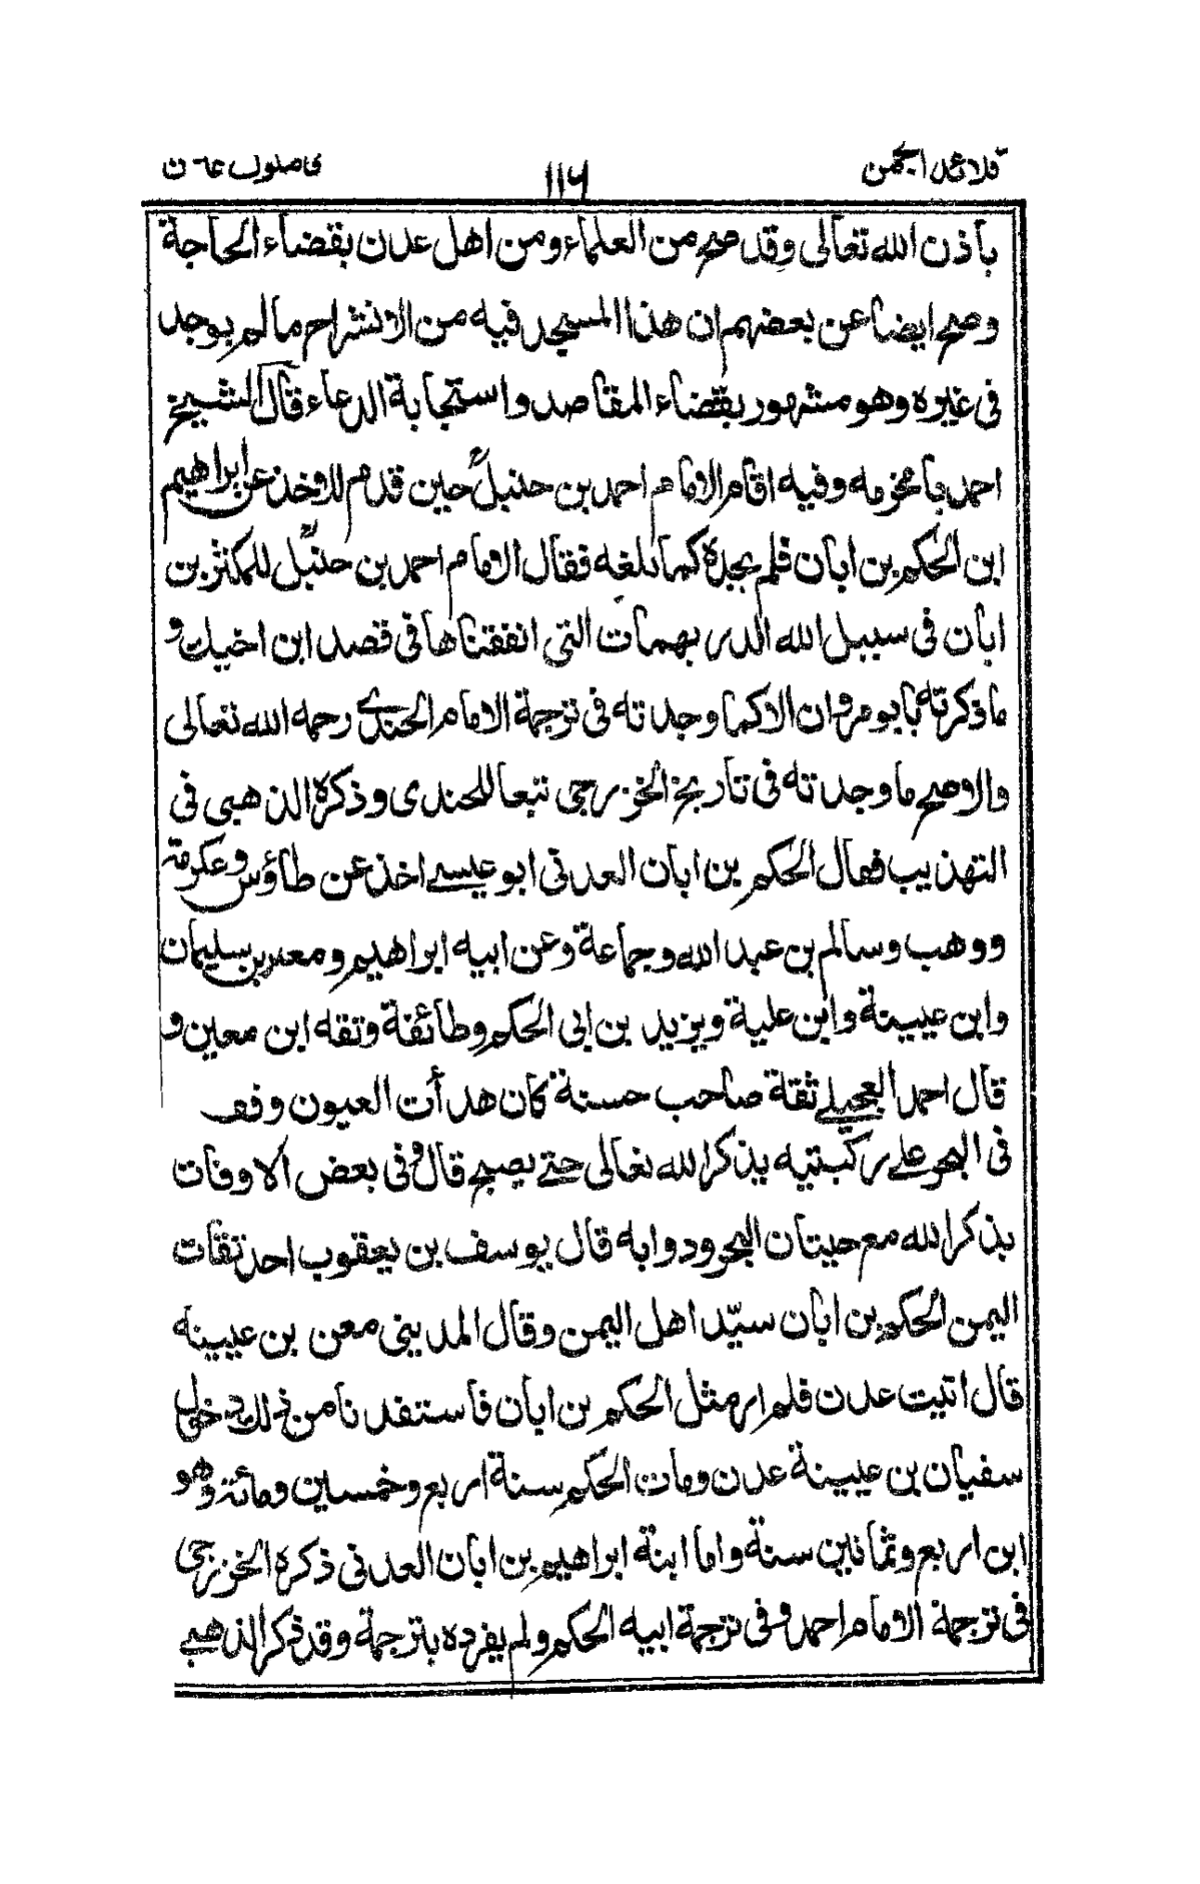 قلائد الجمن ١١٦ فى ملوك عدن
بأذن الله تعالى وقد صح من العلماء ومن اهل عدن بقضاء الحاجة
وصح ايضا عن بعضهم ان هذا المسجد فيه من الانشراح ما لم يوجد
فى غيره وهو مشهور بقضاء المقاصد واستجابة الدعاء قال الشيخ
احمد بامخرمه وفيه اقام الامام احمد بن حنبل حين قدم للاخذ عن ابراهيم
ابن الحكم بن ابان فلم يجده كما بلغه فقال الامام احمد بن حنبل للمكثر بن
ابان فى سبيل الله الدريهمات التى انفقناها فى قصد ابن اخيك و
ما ذكرته بابو مروان الا كما وجدته فى ترجمة الامام الجندى رحمه الله تعالى
والاصح ما وجدته فى تاريخ الخزرجى تبعا للجندى وذكره الذهبى فى
التهذيب فقال الحكم بن ابان العدنى ابو عيسى اخذ عن طاؤس وعكرمة
ووهب وسالم بن عبد الله وجماعة وعن ابيه ابراهيم ومعمر بن سليمان
وابن عيينة وابن علية ويزيد بن ابى الحكم وطائفة وثقه ابن معين و
قال احمد العجيلى ثقة صاحب حسنة كان هدأت العيون وقف
فى البحر على ركبتيه يذكر الله تعالى حتى يصبح قال وفى بعض الاوقات
بذكر الله مع حيتان البحر ودوابه قال يوسف بن يعقوب احد ثقات
اليمن الحكم بن ابان سيّد اهل اليمن وقال المدينى معن بن عيينه
قال اتيت عدن فلم ار مثل الحكم بن ابان فاستفدنا من ذلك دخل
سفيان بن عيينة عدن ومات الحكم سنة اربع وخمسين ومائة وهو
ابن اربع وثمانين سنة واما ابنة ابراهيم بن ابان العدنى ذكره الخزرجى
فى ترجمة الامام احمد وفى ترجمة ابيه الحكم ولم يفرده بترجمة وقد ذكر الذهبى